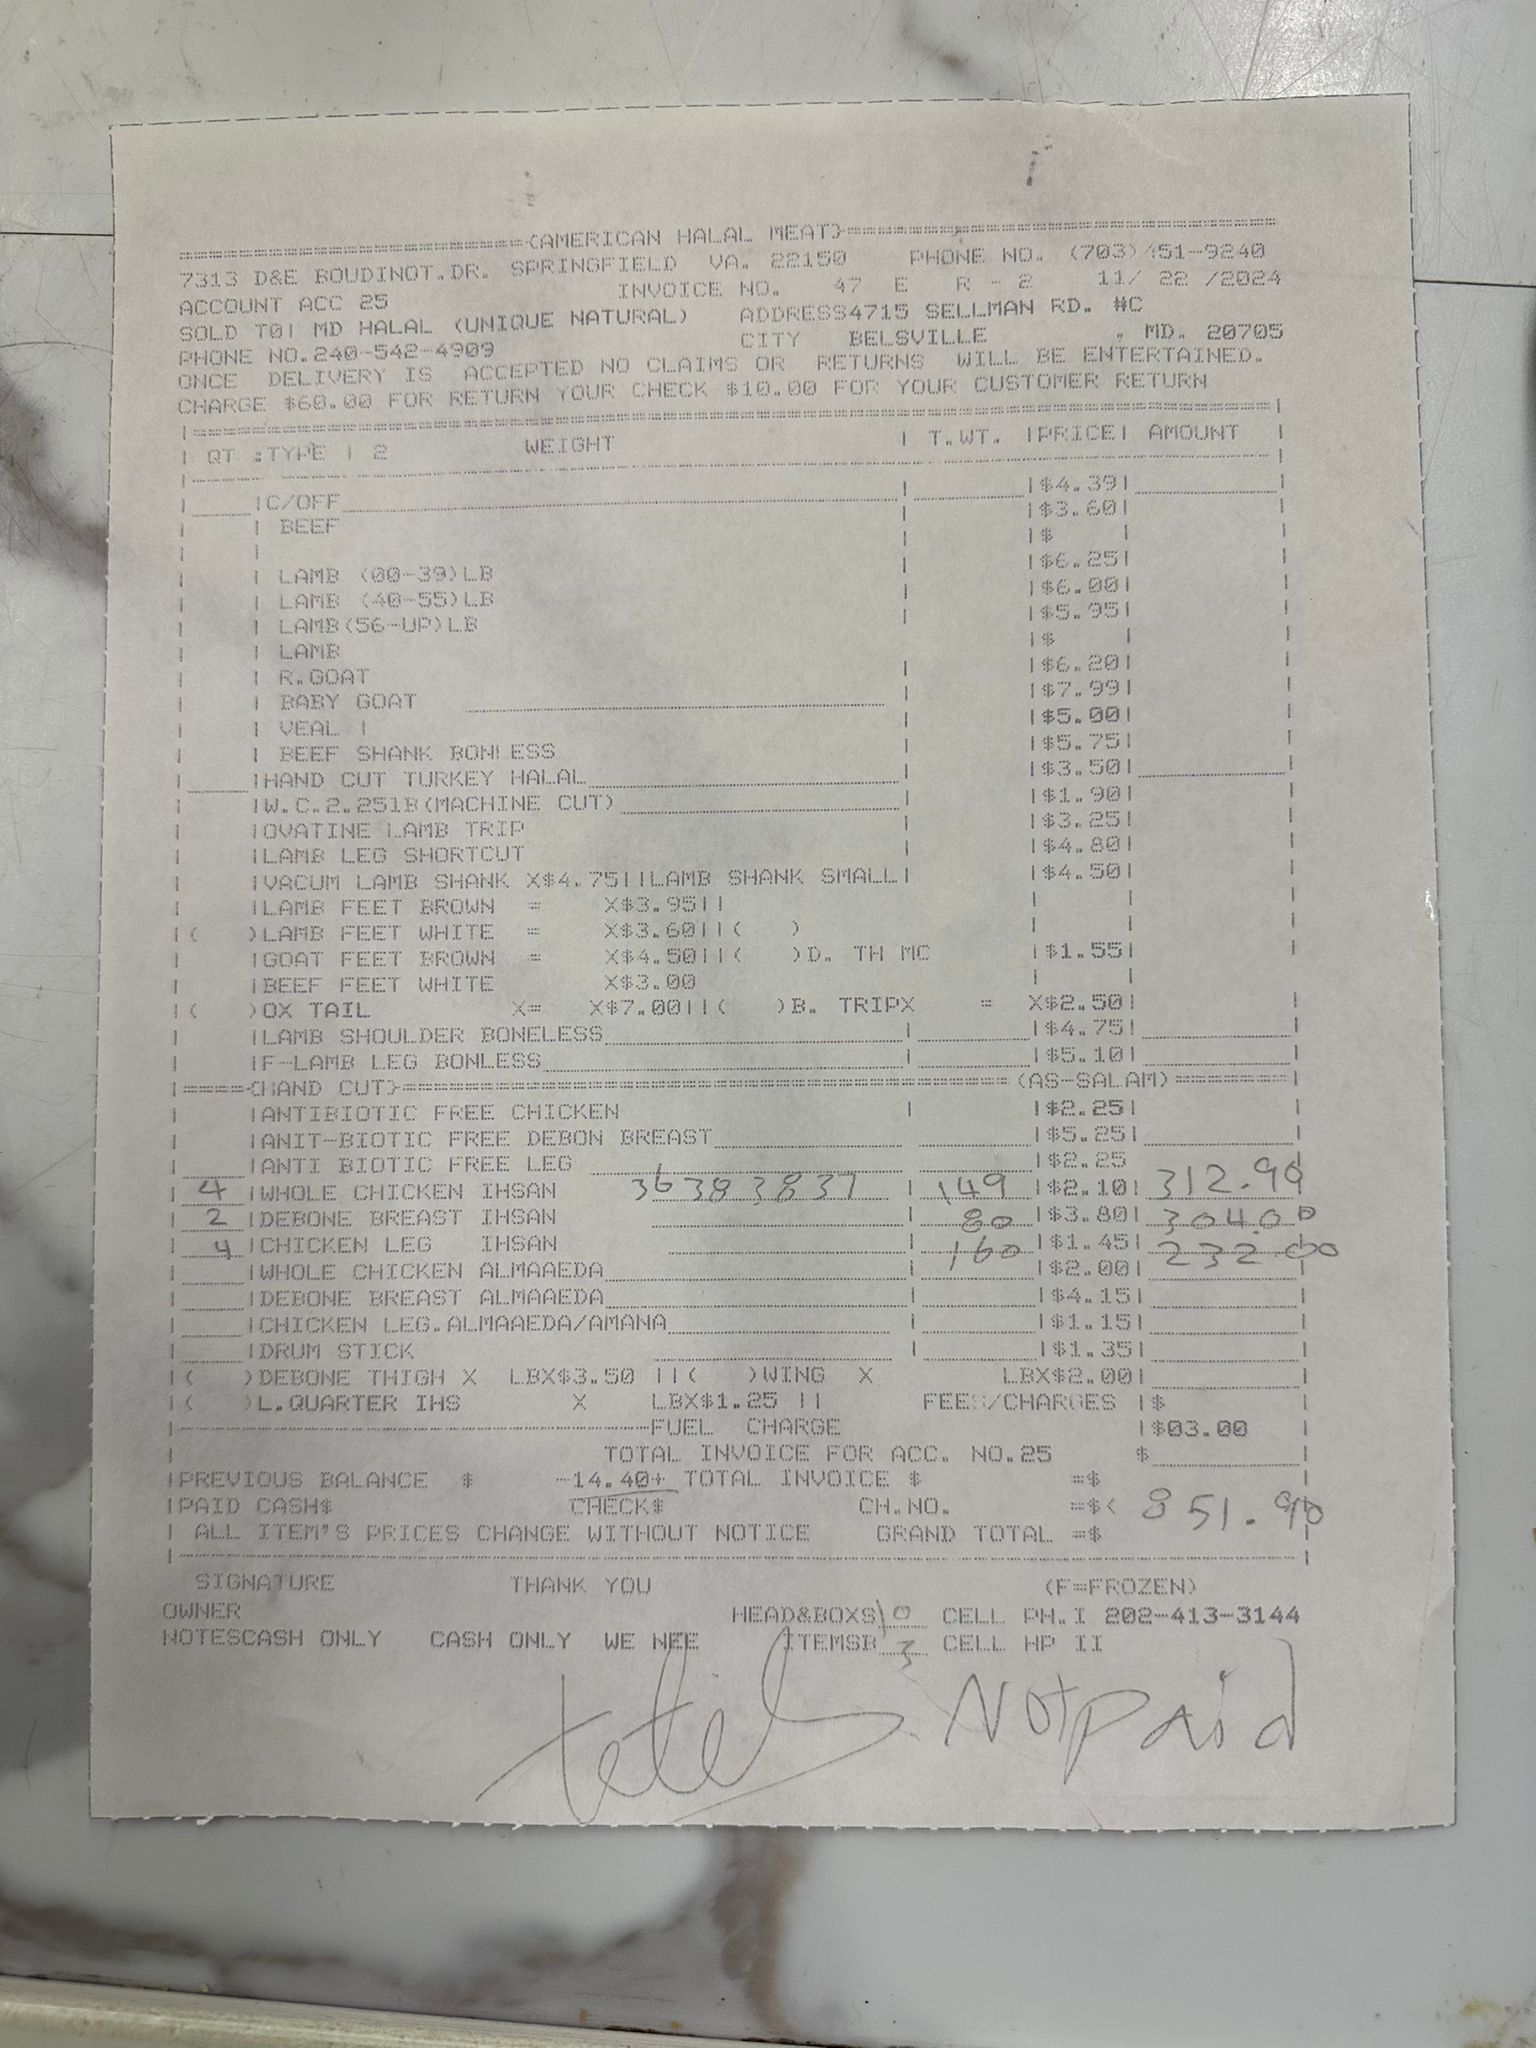 ===================={AMERICAN HALAL MEAT}====================
7313 D&E BOUDINOT.DR. SPRINGFIELD VA. 22150 PHONE NO. (703)451-9240
INVOICE NO. 47 E R - 2 11/ 22 /2024
ACCOUNT ACC 25
SOLD TO| MD HALAL (UNIQUE NATURAL) ADDRESS4715 SELLMAN RD. #C
PHONE NO.240-542-4909 CITY BELSVILLE , MD. 20705
ONCE DELIVERY IS ACCEPTED NO CLAIMS OR RETURNS WILL BE ENTERTAINED.
CHARGE $60.00 FOR RETURN YOUR CHECK $10.00 FOR YOUR CUSTOMER RETURN
QT :TYPE | 2 WEIGHT | T.WT. |PRICE| AMOUNT
|C/OFF |$4.39|
| BEEF |$3.60|
|$ |
| LAMB (00-39)LB |$6.25|
| LAMB (40-55)LB |$6.00|
| LAMB(56-UP)LB |$5.95|
| LAMB |$ |
| R.GOAT |$6.20|
| BABY GOAT |$7.99|
| VEAL | |$5.00|
| BEEF SHANK BONLESS |$5.75|
|HAND CUT TURKEY HALAL |$3.50|
|W.C.2.25lB(MACHINE CUT) |$1.90|
|OVATINE LAMB TRIP |$3.25|
|LAMB LEG SHORTCUT |$4.80|
|VACUM LAMB SHANK X$4.75||LAMB SHANK SMALL| |$4.50|
|LAMB FEET BROWN = X$3.95||
|( )LAMB FEET WHITE = X$3.60||( )
|GOAT FEET BROWN = X$4.50||( )D. TH MC |$1.55|
|BEEF FEET WHITE X$3.00
|( )OX TAIL X= X$7.00||( )B. TRIPX = X$2.50|
|LAMB SHOULDER BONELESS |$4.75|
|F-LAMB LEG BONLESS |$5.10|
|====={HAND CUT}====================(AS-SALAM)=======|
|ANTIBIOTIC FREE CHICKEN |$2.25|
|ANIT-BIOTIC FREE DEBON BREAST |$5.25|
|ANTI BIOTIC FREE LEG |$2.25
4 |WHOLE CHICKEN IHSAN 36383837 | 149 |$2.10| 312.90
2 |DEBONE BREAST IHSAN 80 |$3.80| 304.00
4 |CHICKEN LEG IHSAN 160 |$1.45| 232.00
|WHOLE CHICKEN ALMAAEDA |$2.00|
|DEBONE BREAST ALMAAEDA |$4.15|
|CHICKEN LEG.ALMAAEDA/AMANA |$1.15|
|DRUM STICK |$1.35|
|( )DEBONE THIGH X LBX$3.50 ||( )WING X LBX$2.00|
|( )L.QUARTER IHS X LBX$1.25 || FEES/CHARGES |$
|--------------------FUEL CHARGE |$03.00
TOTAL INVOICE FOR ACC. NO.25 $
|PREVIOUS BALANCE $ -14.40+ TOTAL INVOICE $ =$
|PAID CASH$ CHECK$ CH.NO. =$< 851.90
| ALL ITEM'S PRICES CHANGE WITHOUT NOTICE GRAND TOTAL =$
SIGNATURE THANK YOU (F=FROZEN)
OWNER HEAD&BOXS 10 CELL PH.I 202-413-3144
NOTESCASH ONLY CASH ONLY WE NEE ITEMSB 3 CELL HP II
Not paid